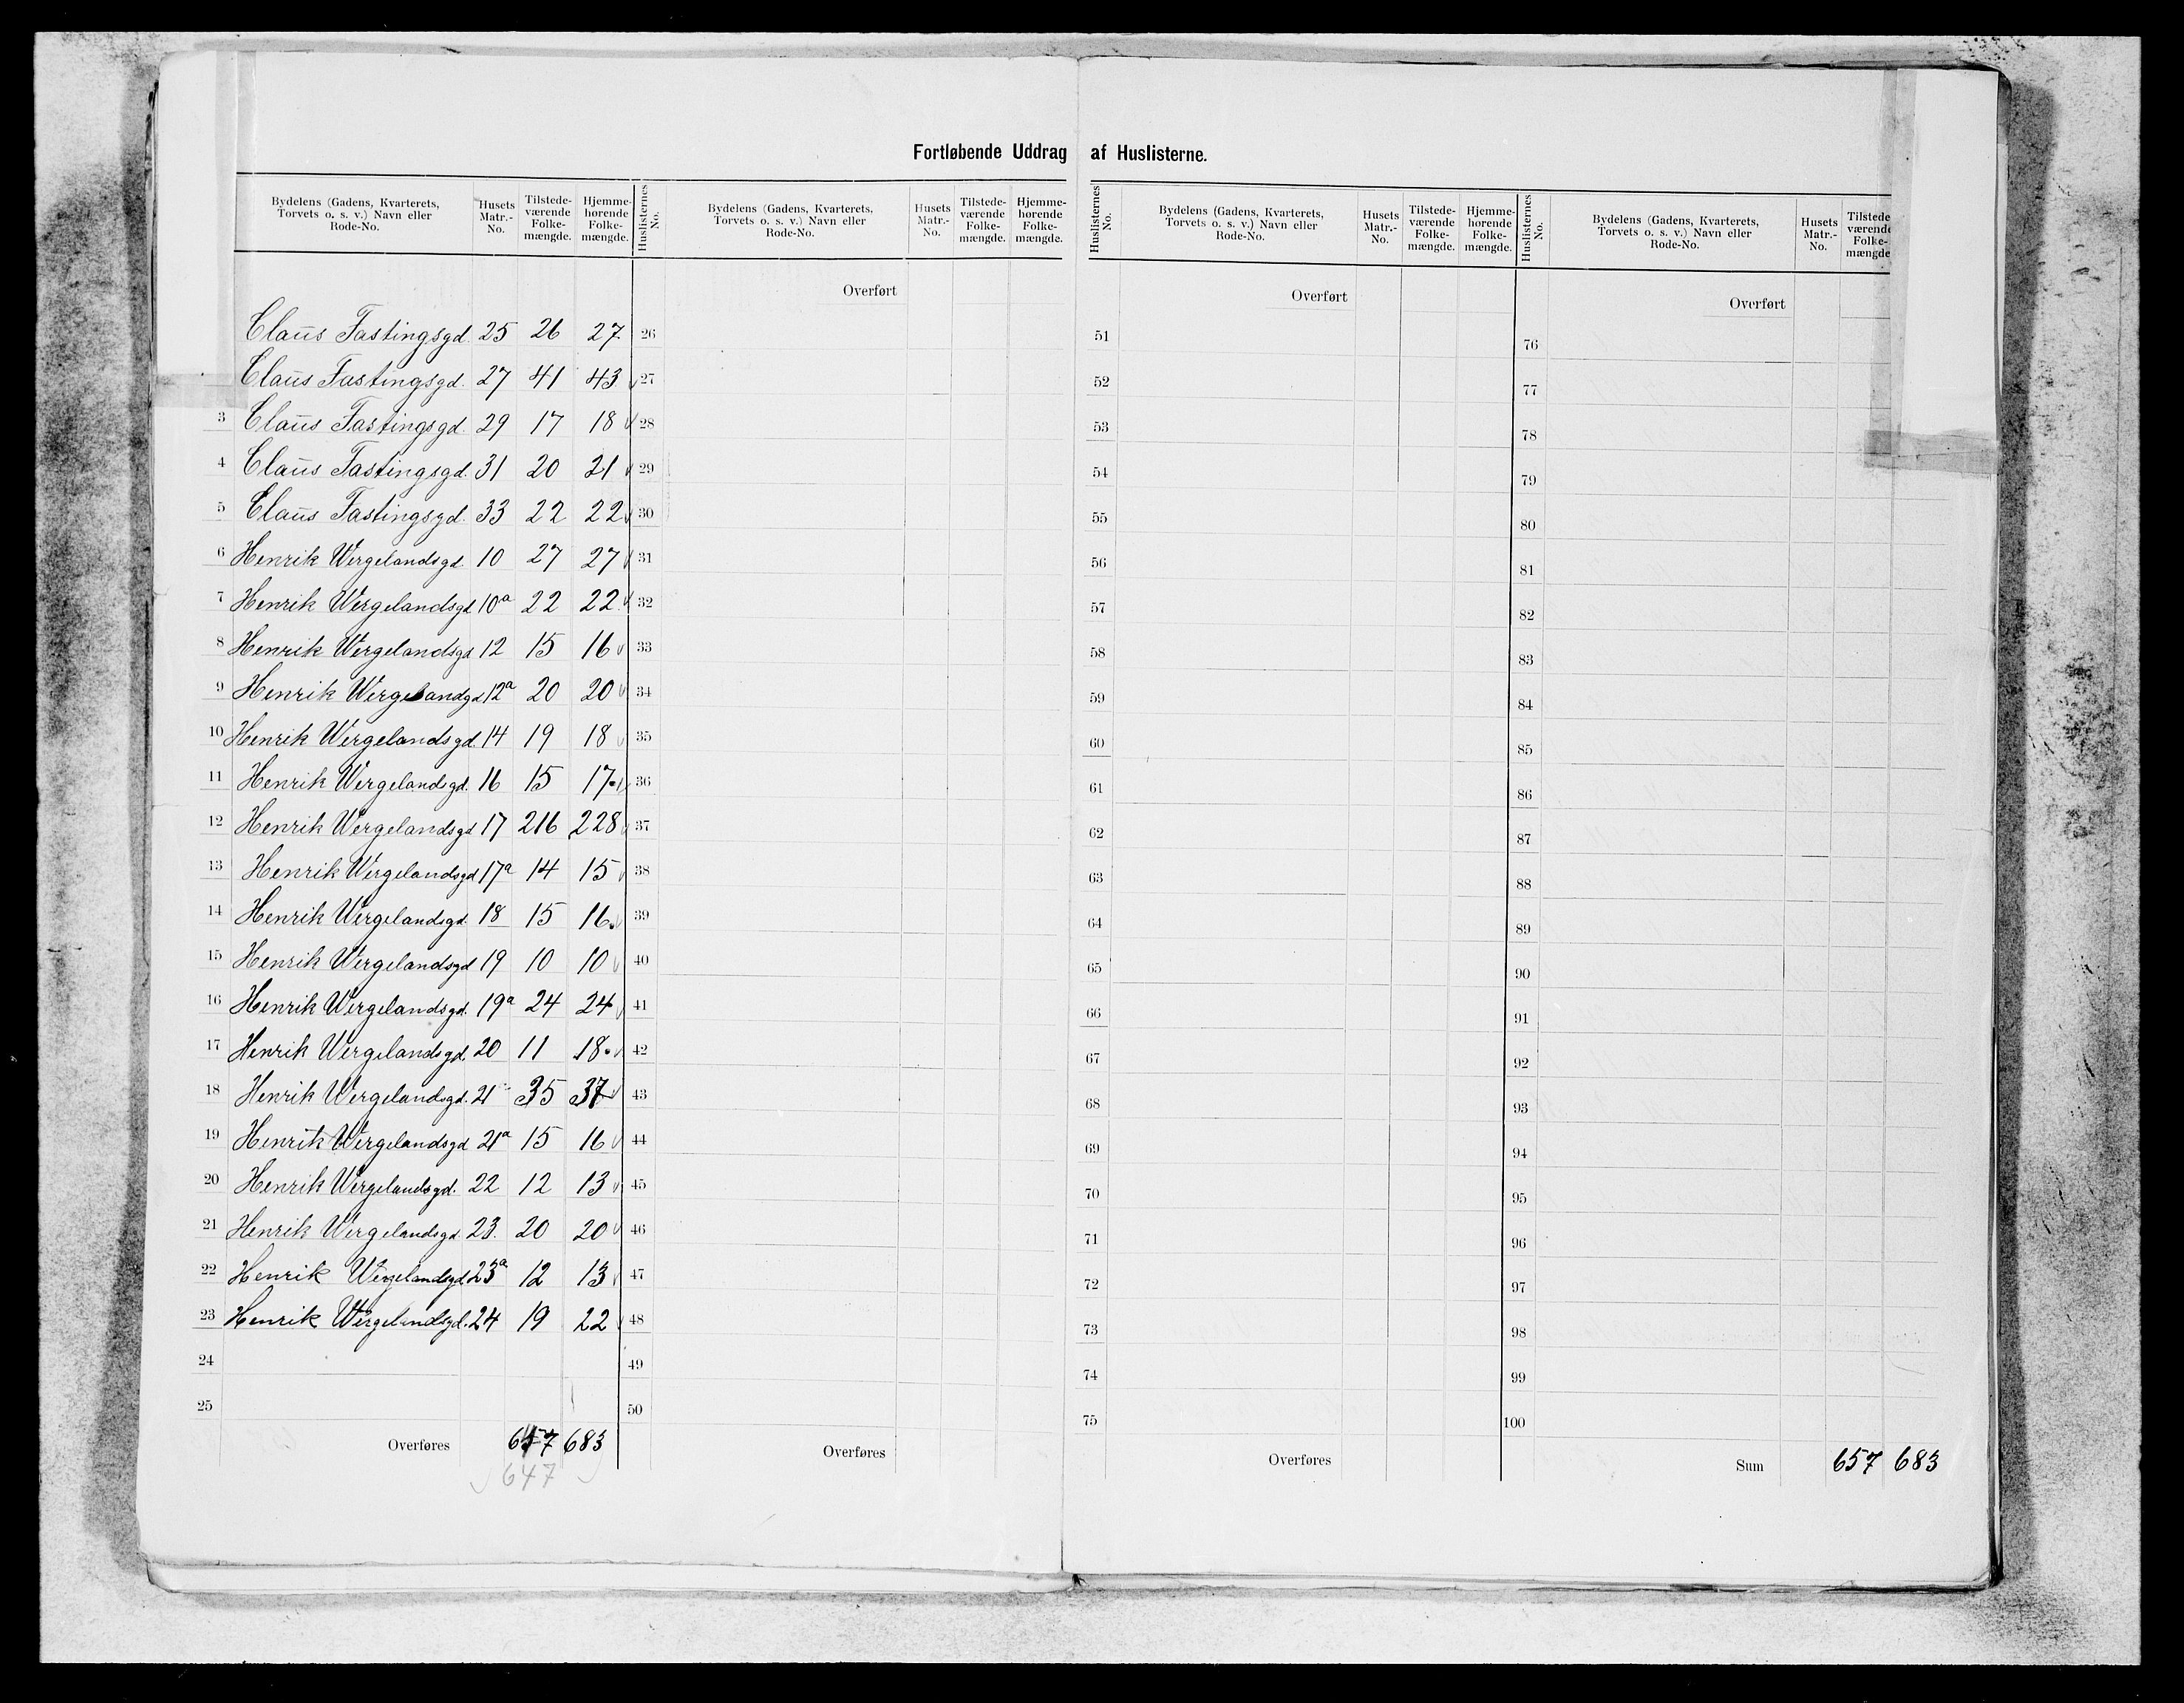 Fortløbende Uddrag af Huslisterne.
Bydelens (Gadens, Kvarterets, Torvets o. s. v.) Navn eller Rode-No. Husets Matr.-No. Tilstede-værende Folke-mængde. Hjemme-hørende Folke-mængde.
Claus Fastingsgd. 25 26 27
Claus Fastingsgd. 27 41 43
3 Claus Fastingsgd. 29 17 18
4 Claus Fastingsgd. 31 20 21
5 Claus Fastingsgd. 33 22 22
6 Henrik Wergelandsgd. 10 27 27
7 Henrik Wergelandsgd 10a 22 22
8 Henrik Wergelandsgd 12 15 16
9 Henrik Wergelandgd 12a 20 20
10 Henrik Wergelandsgd. 14 19 18
11 Henrik Wergelandsgd. 16 15 17
12 Henrik Wergelandsgd 17 216 228
13 Henrik Wergelandsgd 17a 14 15
14 Henrik Wergelandsgd. 18 15 16
15 Henrik Wergelandsgd 19 10 10
16 Henrik Wergelandsgd. 19a 24 24
17 Henrik Wergelandsgd. 20 11 18
18 Henrik Wergelandsgd. 21 35 37
19 Henrik Wergelandsgd 21a 15 16
20 Henrik Wergelandsgd. 22 12 13
21 Henrik Wergelandsgd. 23. 20 20
22 Henrik Wergelandsgd. 23a 12 13
23 Henrik Wergelandsgd. 24 19 22
24
25
Overføres 657 683
647
Huslisternes No. Bydelens (Gadens, Kvarterets, Torvets o. s. v.) Navn eller Rode-No. Husets Matr.-No. Tilstede-værende Folke-mængde. Hjemme-hørende Folke-mængde.
Overført
26
27
28
29
30
31
32
33
34
35
36
37
38
39
40
41
42
43
44
45
46
47
48
49
50
Overføres
Huslisternes No. Bydelens (Gadens, Kvarterets, Torvets o. s. v.) Navn eller Rode-No. Husets Matr.-No. Tilstede-værende Folke-mængde. Hjemme-hørende Folke-mængde.
Overført
51
52
53
54
55
56
57
58
59
60
61
62
63
64
65
66
67
68
69
70
71
72
73
74
75
Overføres
Huslisternes No. Bydelens (Gadens, Kvarterets, Torvets o. s. v.) Navn eller Rode-No. Husets Matr.-No. Tilstede-værende Folke-mængde
Overført
76
77
78
79
80
81
82
83
84
85
86
87
88
89
90
91
92
93
94
95
96
97
98
99
100
Sum 657 683